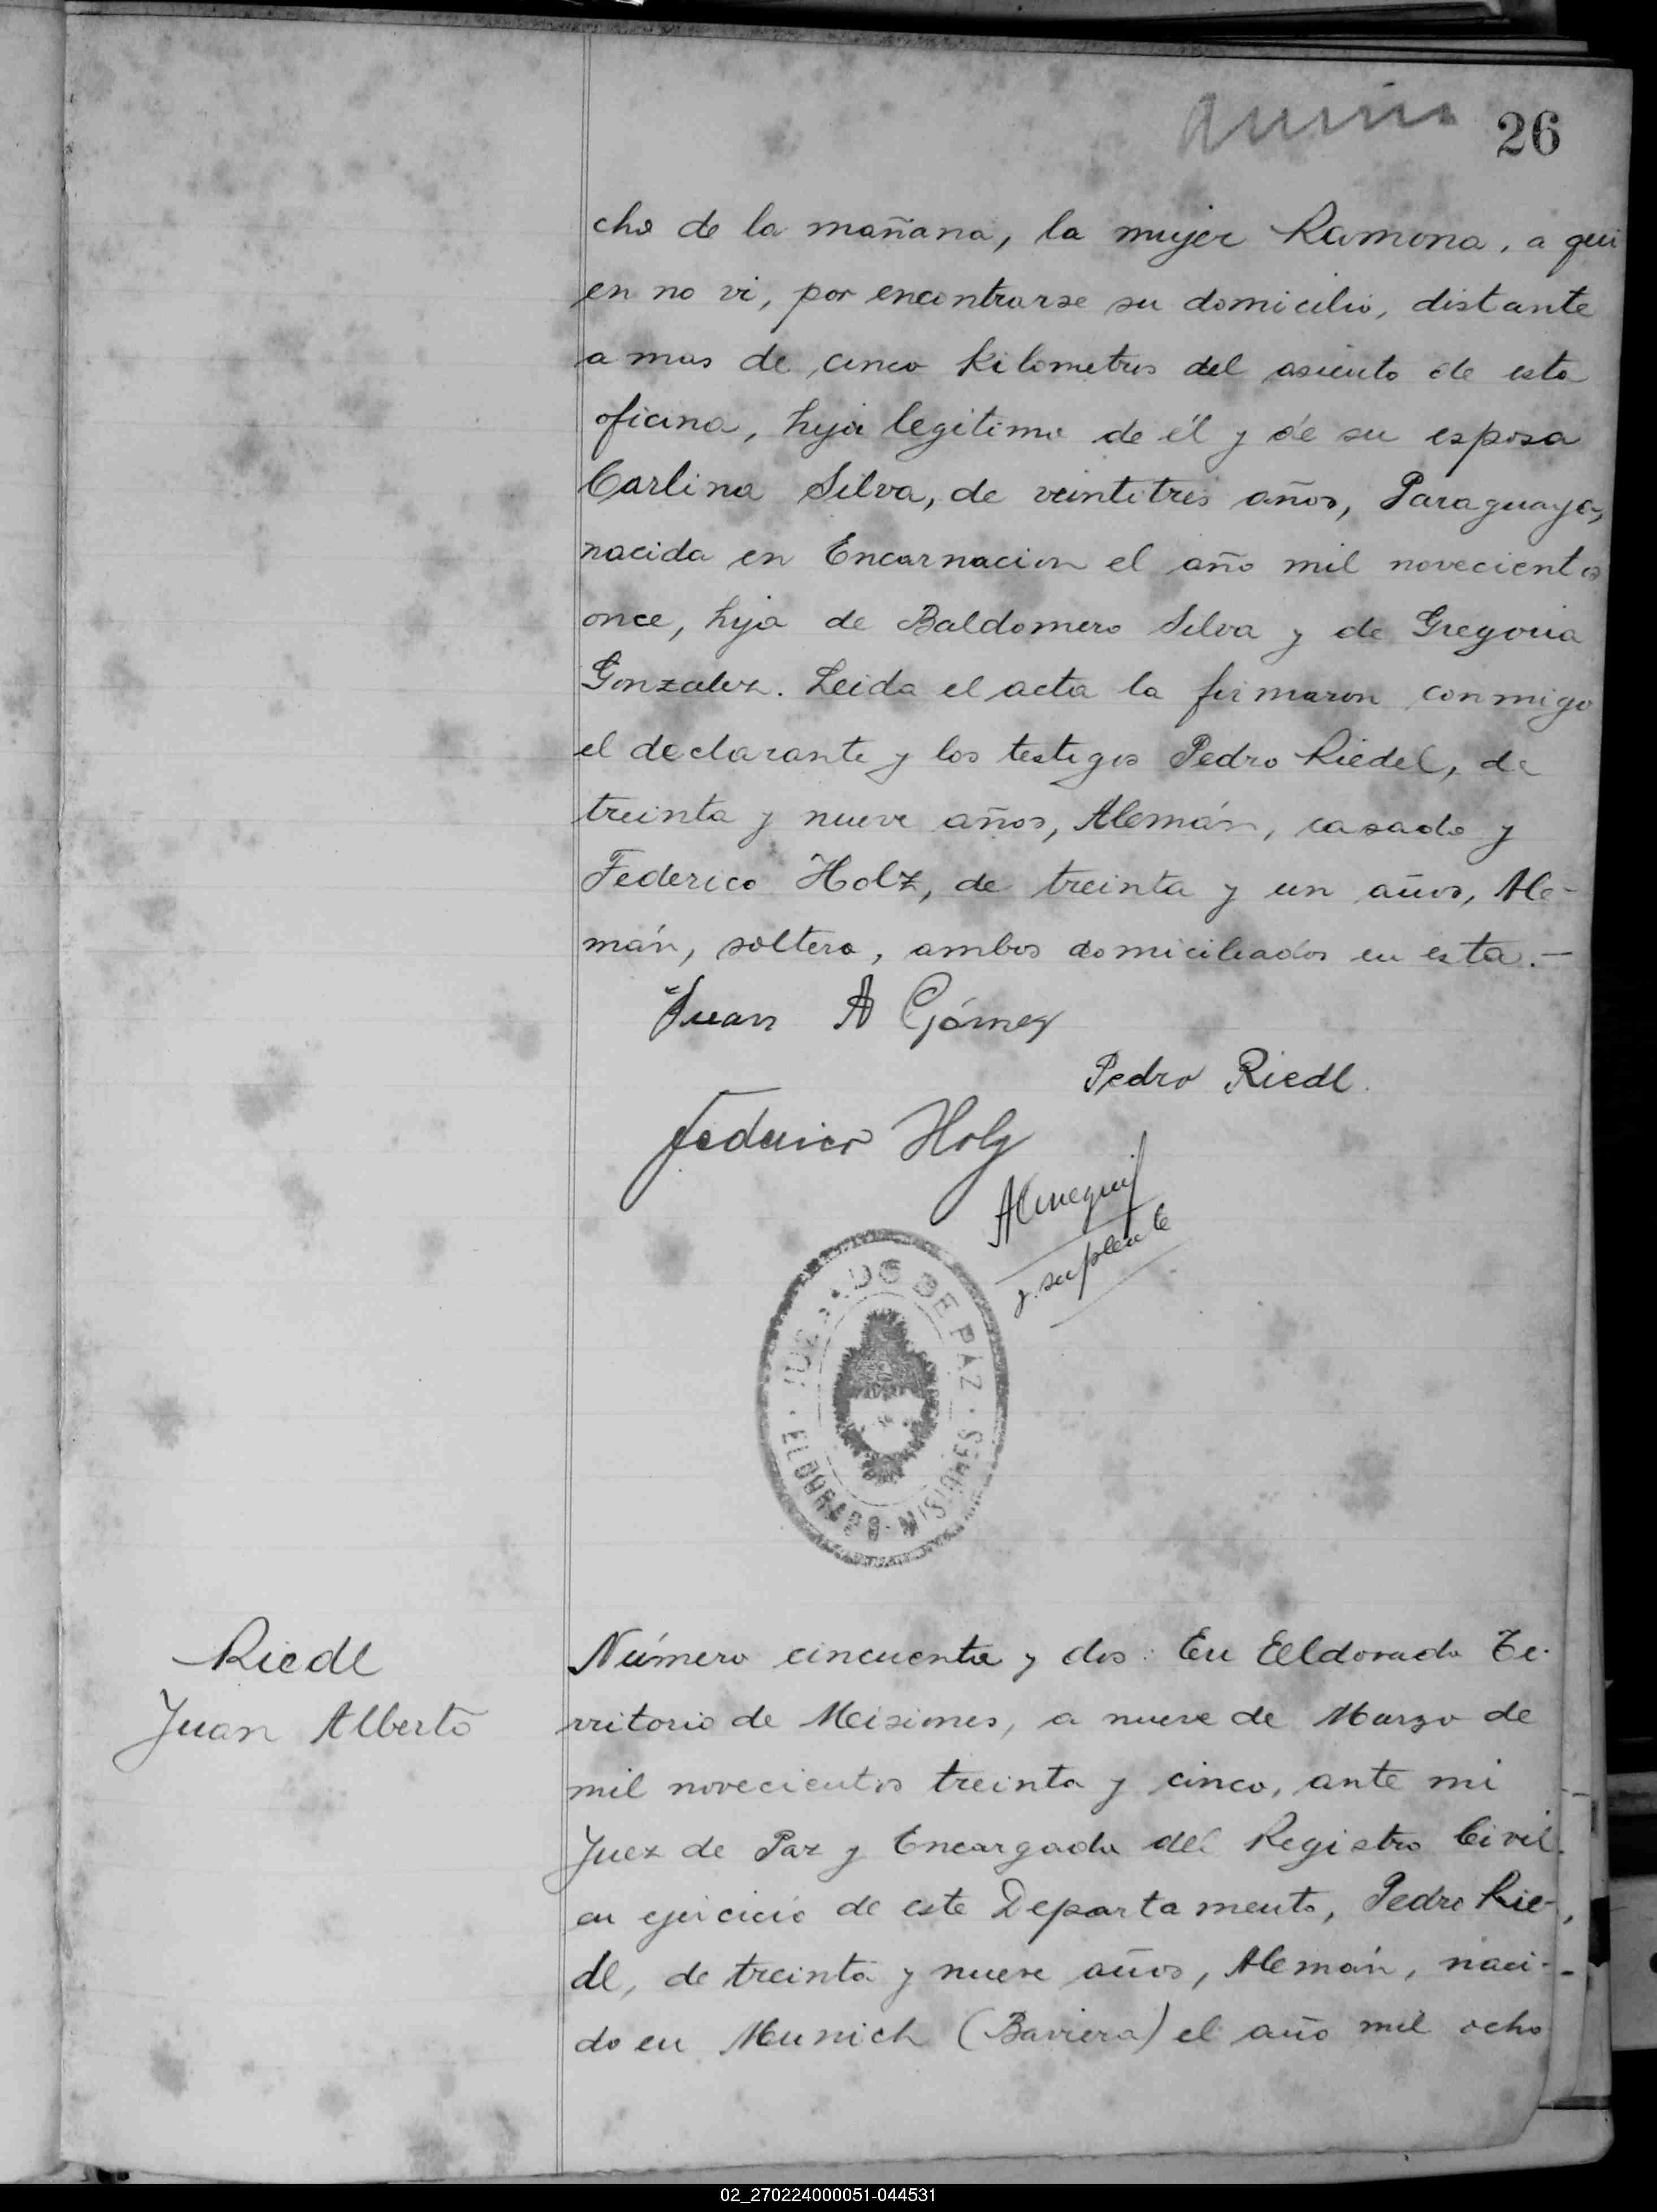 26
cho de la mañana, la mujer Ramona, a qui
en no vi, por encontrarse su domicilio, distante
a mas de cinco kilometros del asiento de esta
oficina, hija legitima de él y de su esposa
Carlina Silva, de veintitres años, Paraguaya,
nacida en Encarnacion el año mil novecientos
once, hija de Baldomero Silva y de Gregoria
Gonzalez. Leida el acta la firmaron conmigo
el declarante y los testigos Pedro Riedel, de
treinta y nueve años, Alemán, casado y
Federico Holz, de treinta y un años, Ale-
mán, soltero, ambos domiciliados en esta.—
Juan A Gómez
Pedro Riedl.
Federico Holz
J. suplente
JUZGADO DE PAZ
ELDORADO - MISIONES
Riedl
Juan Alberto
Número cincuenta y dos: En Eldorado Te-
rritorio de Misiones, a nueve de Marzo de
mil novecientos treinta y cinco, ante mi
Juez de Paz y Encargado del Registro Civil
en ejercicio de este Departamento, Pedro Rie-
dl, de treinta y nueve años, Alemán, naci-
do en Munich (Baviera) el año mil ocho
02_270224000051-044531